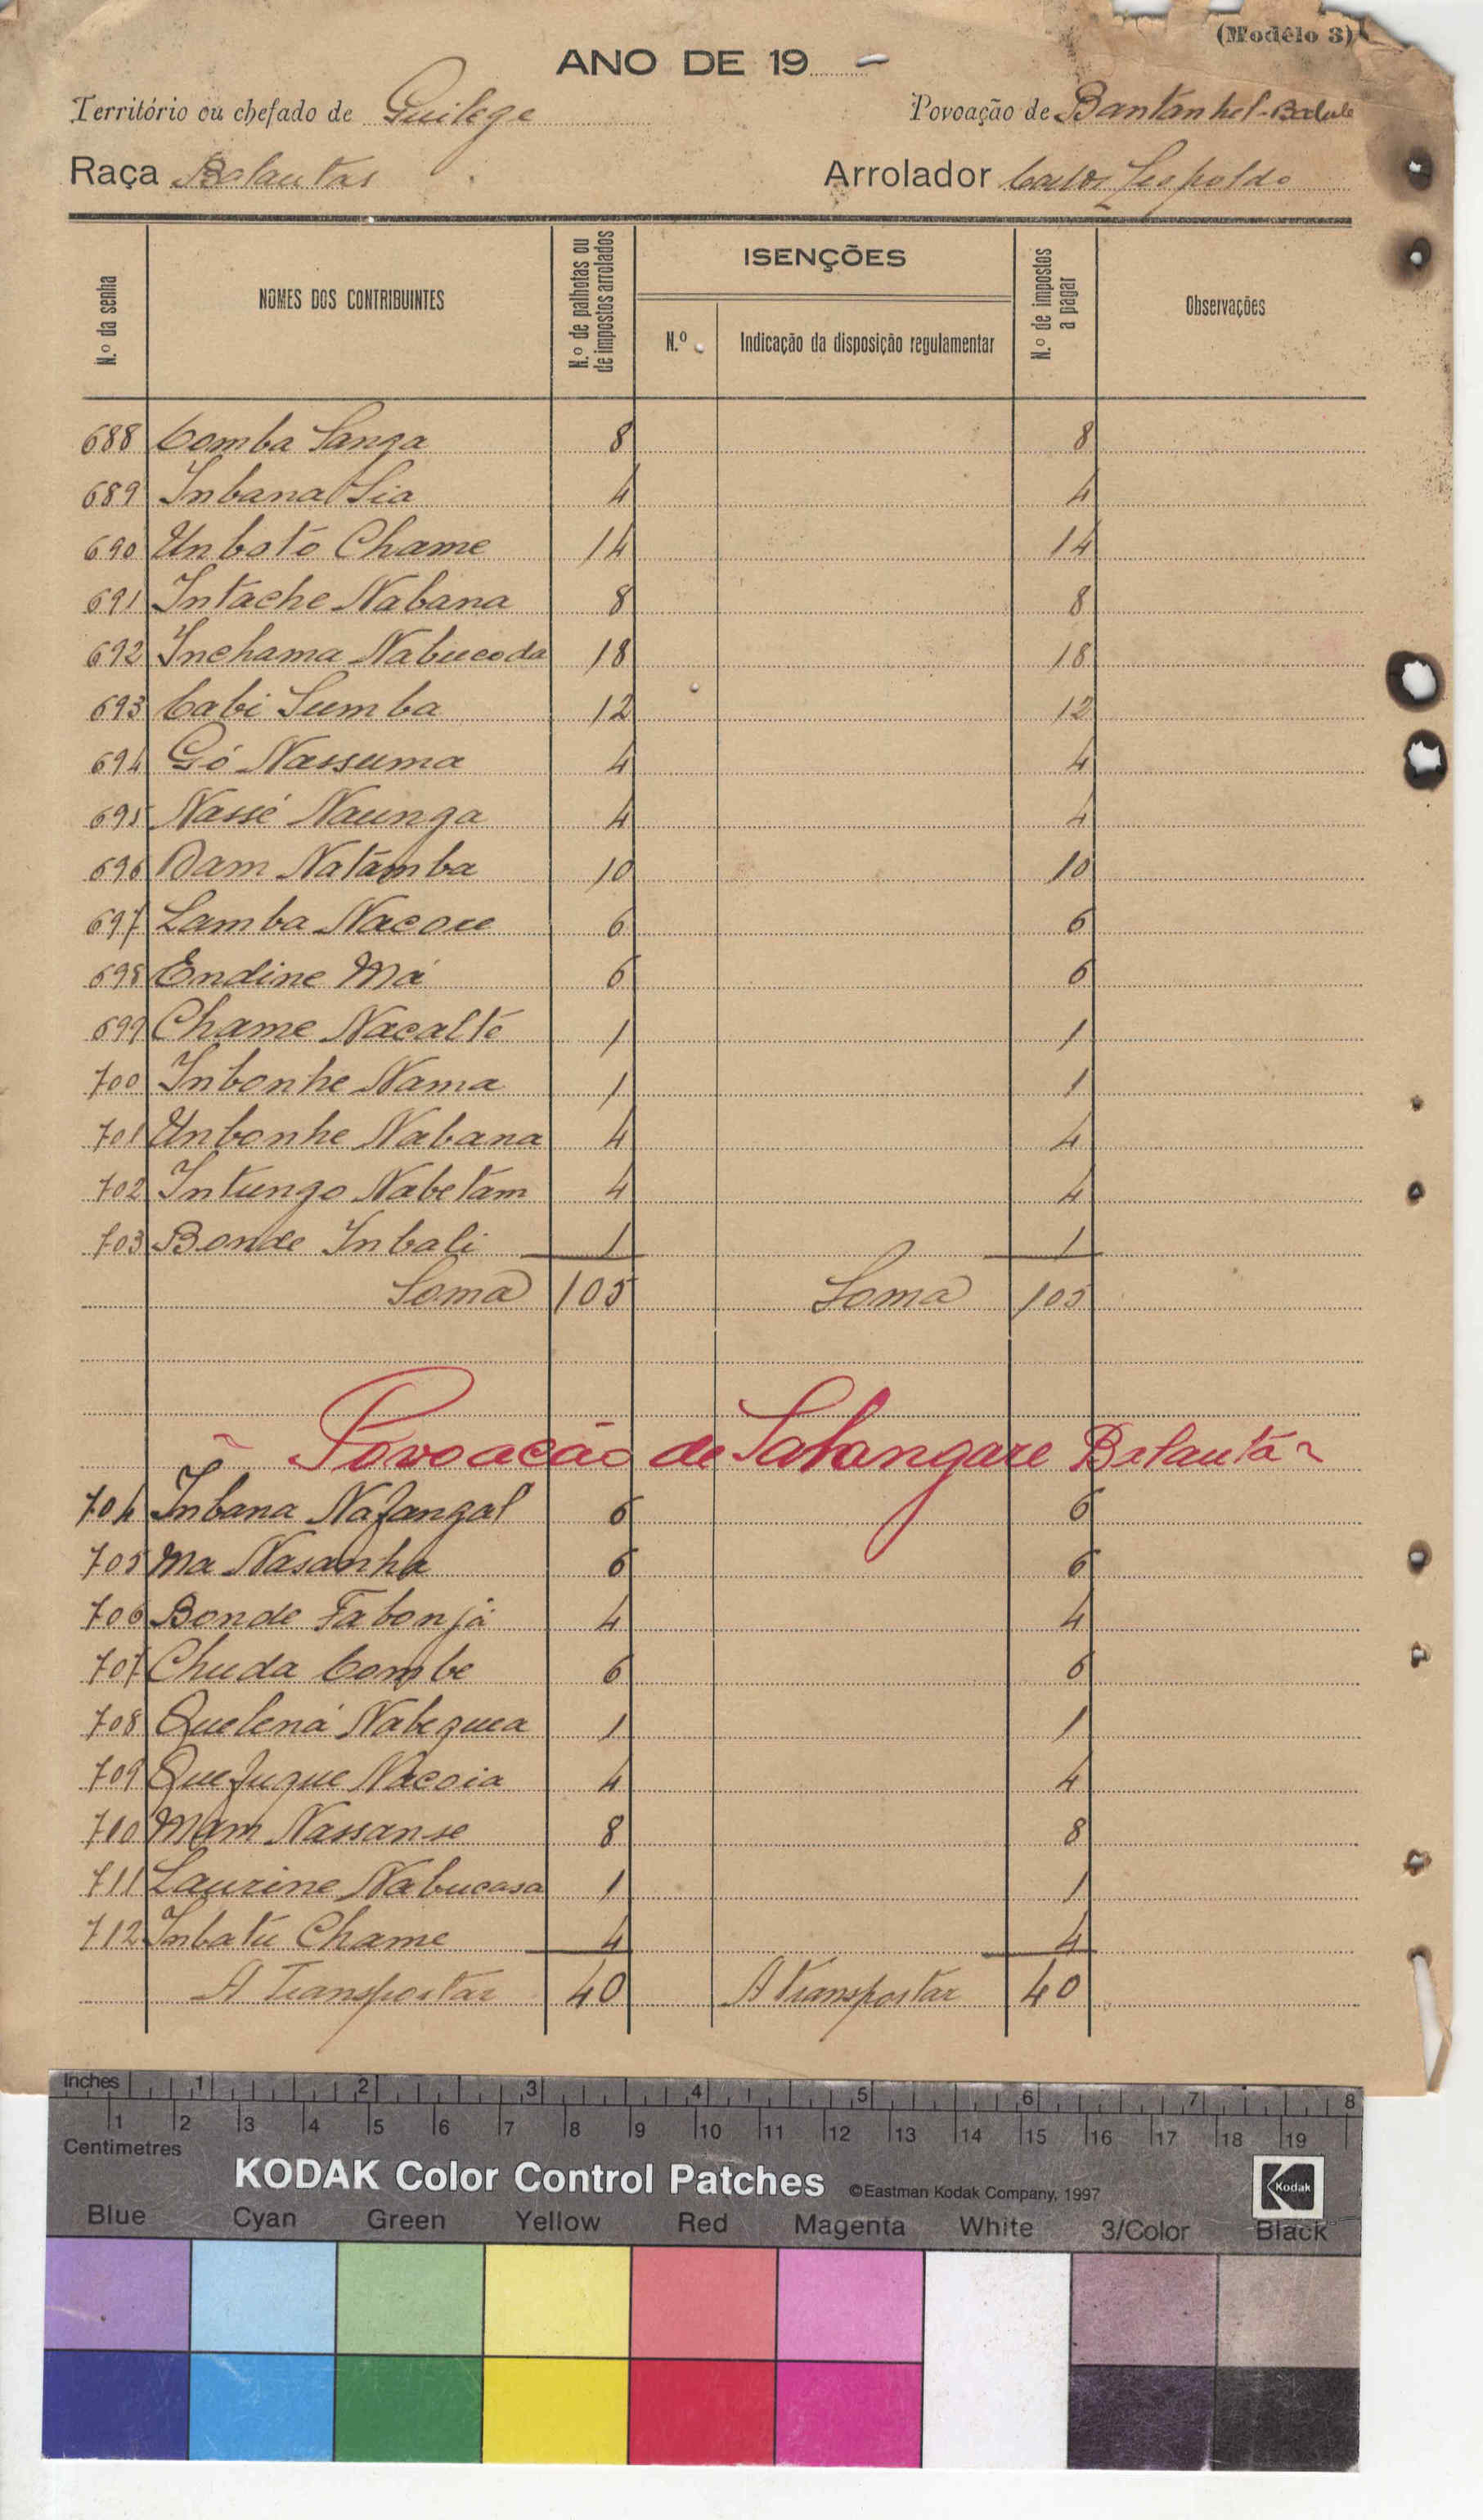 (Modêlo 3)
ANO DE 19 -
Território ou chefado de Guilege Povoação de Bantanhel-Balale
Raça Balantas Arrolador Carlos Leopoldo
N.º da senha NOMES DOS CONTRIBUINTES N.º de palhotas ou de impostos arrolados ISENÇÕES N.º de impostos a pagar Observações
N.º Indicação da disposição regulamentar
688 Comba Sanga 8 8
689 Inbana Sia 4 4
690 Unbotó Chame 14 14
691 Intache Nabana 8 8
692 Inchama Nabucoda 18 18
693 Cabi Sumba 12 12
694 Gó Nassuma 4 4
695 Nassé Naunga 4 4
696 Dam Natamba 10 10
697 Lamba Nacoue 6 6
698 Endine Má 6 6
699 Chame Nacalté 1 1
700 Inbonhe Nama 1 1
701 Unbonhe Nabana 4 4
702 Intungo Nabetam 4 4
703 Bonde Inbali 1 1
Soma 105 Soma 105
Povoação de Salangare Balanta
704 Inbana Nafangal 6 6
705 Ma Nasanha 6 6
706 Bonde Fabonjá 4 4
707 Chuda Combe 6 6
708 Quelená Nabequea 1 1
709 Quefuque Nacoia 4 4
710 Mam Nassanse 8 8
711 Laurine Nabucasa 1 1
712 Inbatú Chame 4 4
A Transportar 40 A transportar 40
Inches 1 2 3 4 5 6 7 8
1 2 3 4 5 6 7 8 9 10 11 12 13 14 15 16 17 18 19
Centimetres
KODAK Color Control Patches ©Eastman Kodak Company, 1997 Kodak
Blue Cyan Green Yellow Red Magenta White 3/Color Black